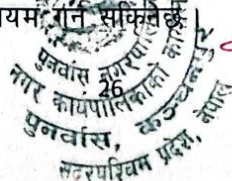 यम गर्न सकिनेछ।
पुनर्वास नगरपालि
नगर कार्यपालिकाको का
26
पुनर्वास, कञ्चनपुर
सुदूरपश्चिम प्रदेश, नेपाल